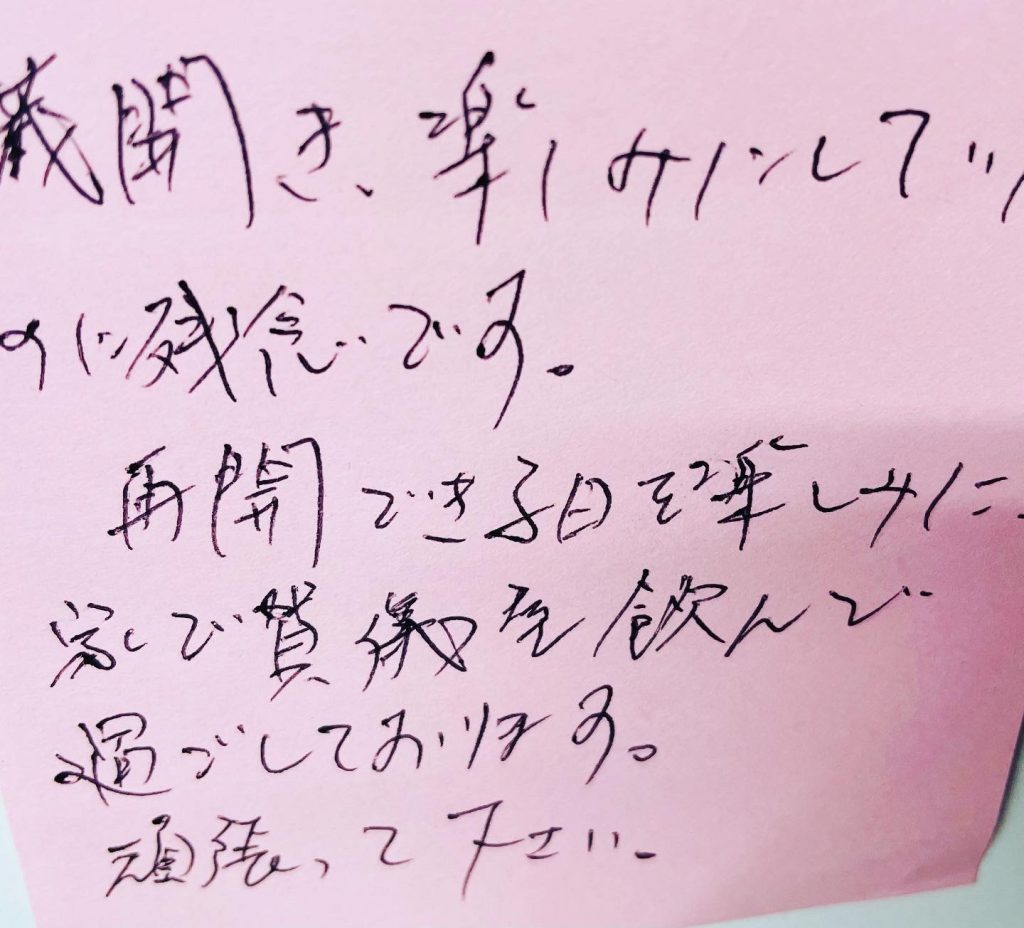 蔵開き、楽しみにしてい
のに残念です。
再開できる日を楽しみに、
家で賀儀を飲んで
過ごしております。
頑張って下さい。